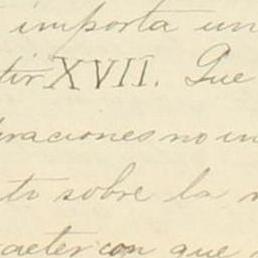 importa un
tir XVII. Que
raciones no in
to sobre la
aeter con que